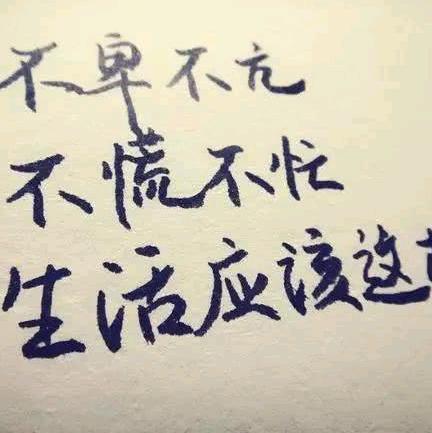 不卑不亢
不慌不忙
生活应该这